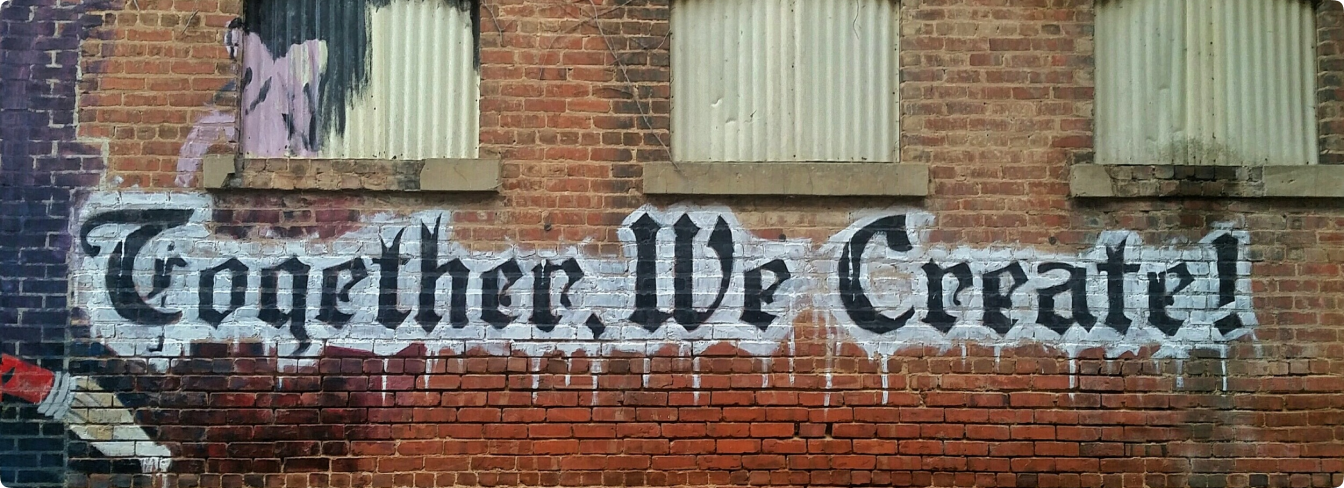 Together, We Create!